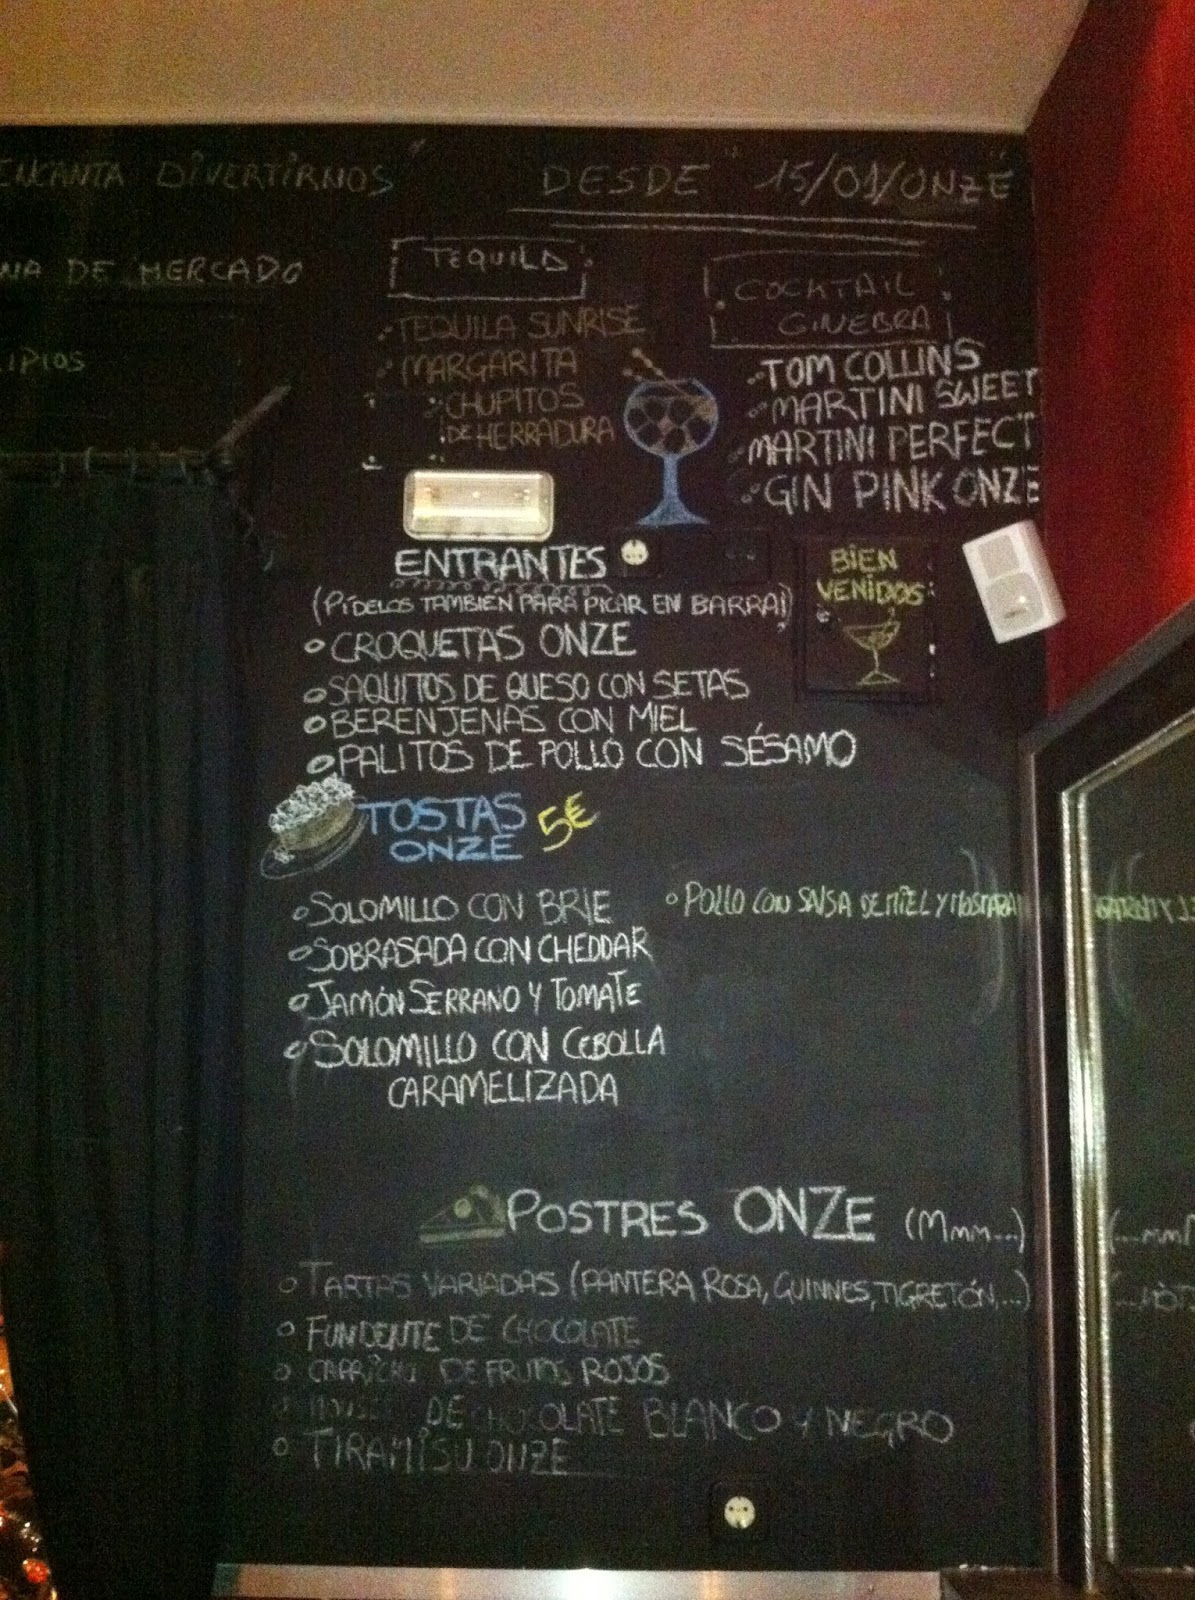 ENCANTA DIVERTIRNOS" DESDE "15/01/ONZE"
DE MERCADO
TEQUILA
TEQUILA SUNRISE
MARGARITA
CHUPITOS
DE HERRADURA
COCKTAIL
GINEBRA
TOM COLLINS
MARTINI SWEET
MARTINI PERFECT
GIN PINK ONZE
BIEN
VENIDOS
ENTRANTES
(PÍDELOS TAMBIÉN PARA PICAR EN BARRA!)
CROQUETAS ONZE
SAQUITOS DE QUESO CON SETAS
BERENJENAS CON MIEL
PALITOS DE POLLO CON SÉSAMO
TOSTAS 5€
ONZE
SOLOMILLO CON BRIE
SOBRASADA CON CHEDDAR
JAMÓN SERRANO Y TOMATE
SOLOMILLO CON CEBOLLA
CARAMELIZADA
POLLO CON SALSA DE MIEL Y MOSTAZA
POSTRES ONZE (Mmm...)
TARTAS VARIADAS (PANTERA ROSA, GUINNES, TIGRETÓN,...)
FUNDENTE DE CHOCOLATE
CAPRICHO DE FRUTOS ROJOS
DE CHOCOLATE BLANCO Y NEGRO
TIRAMISU ONZE